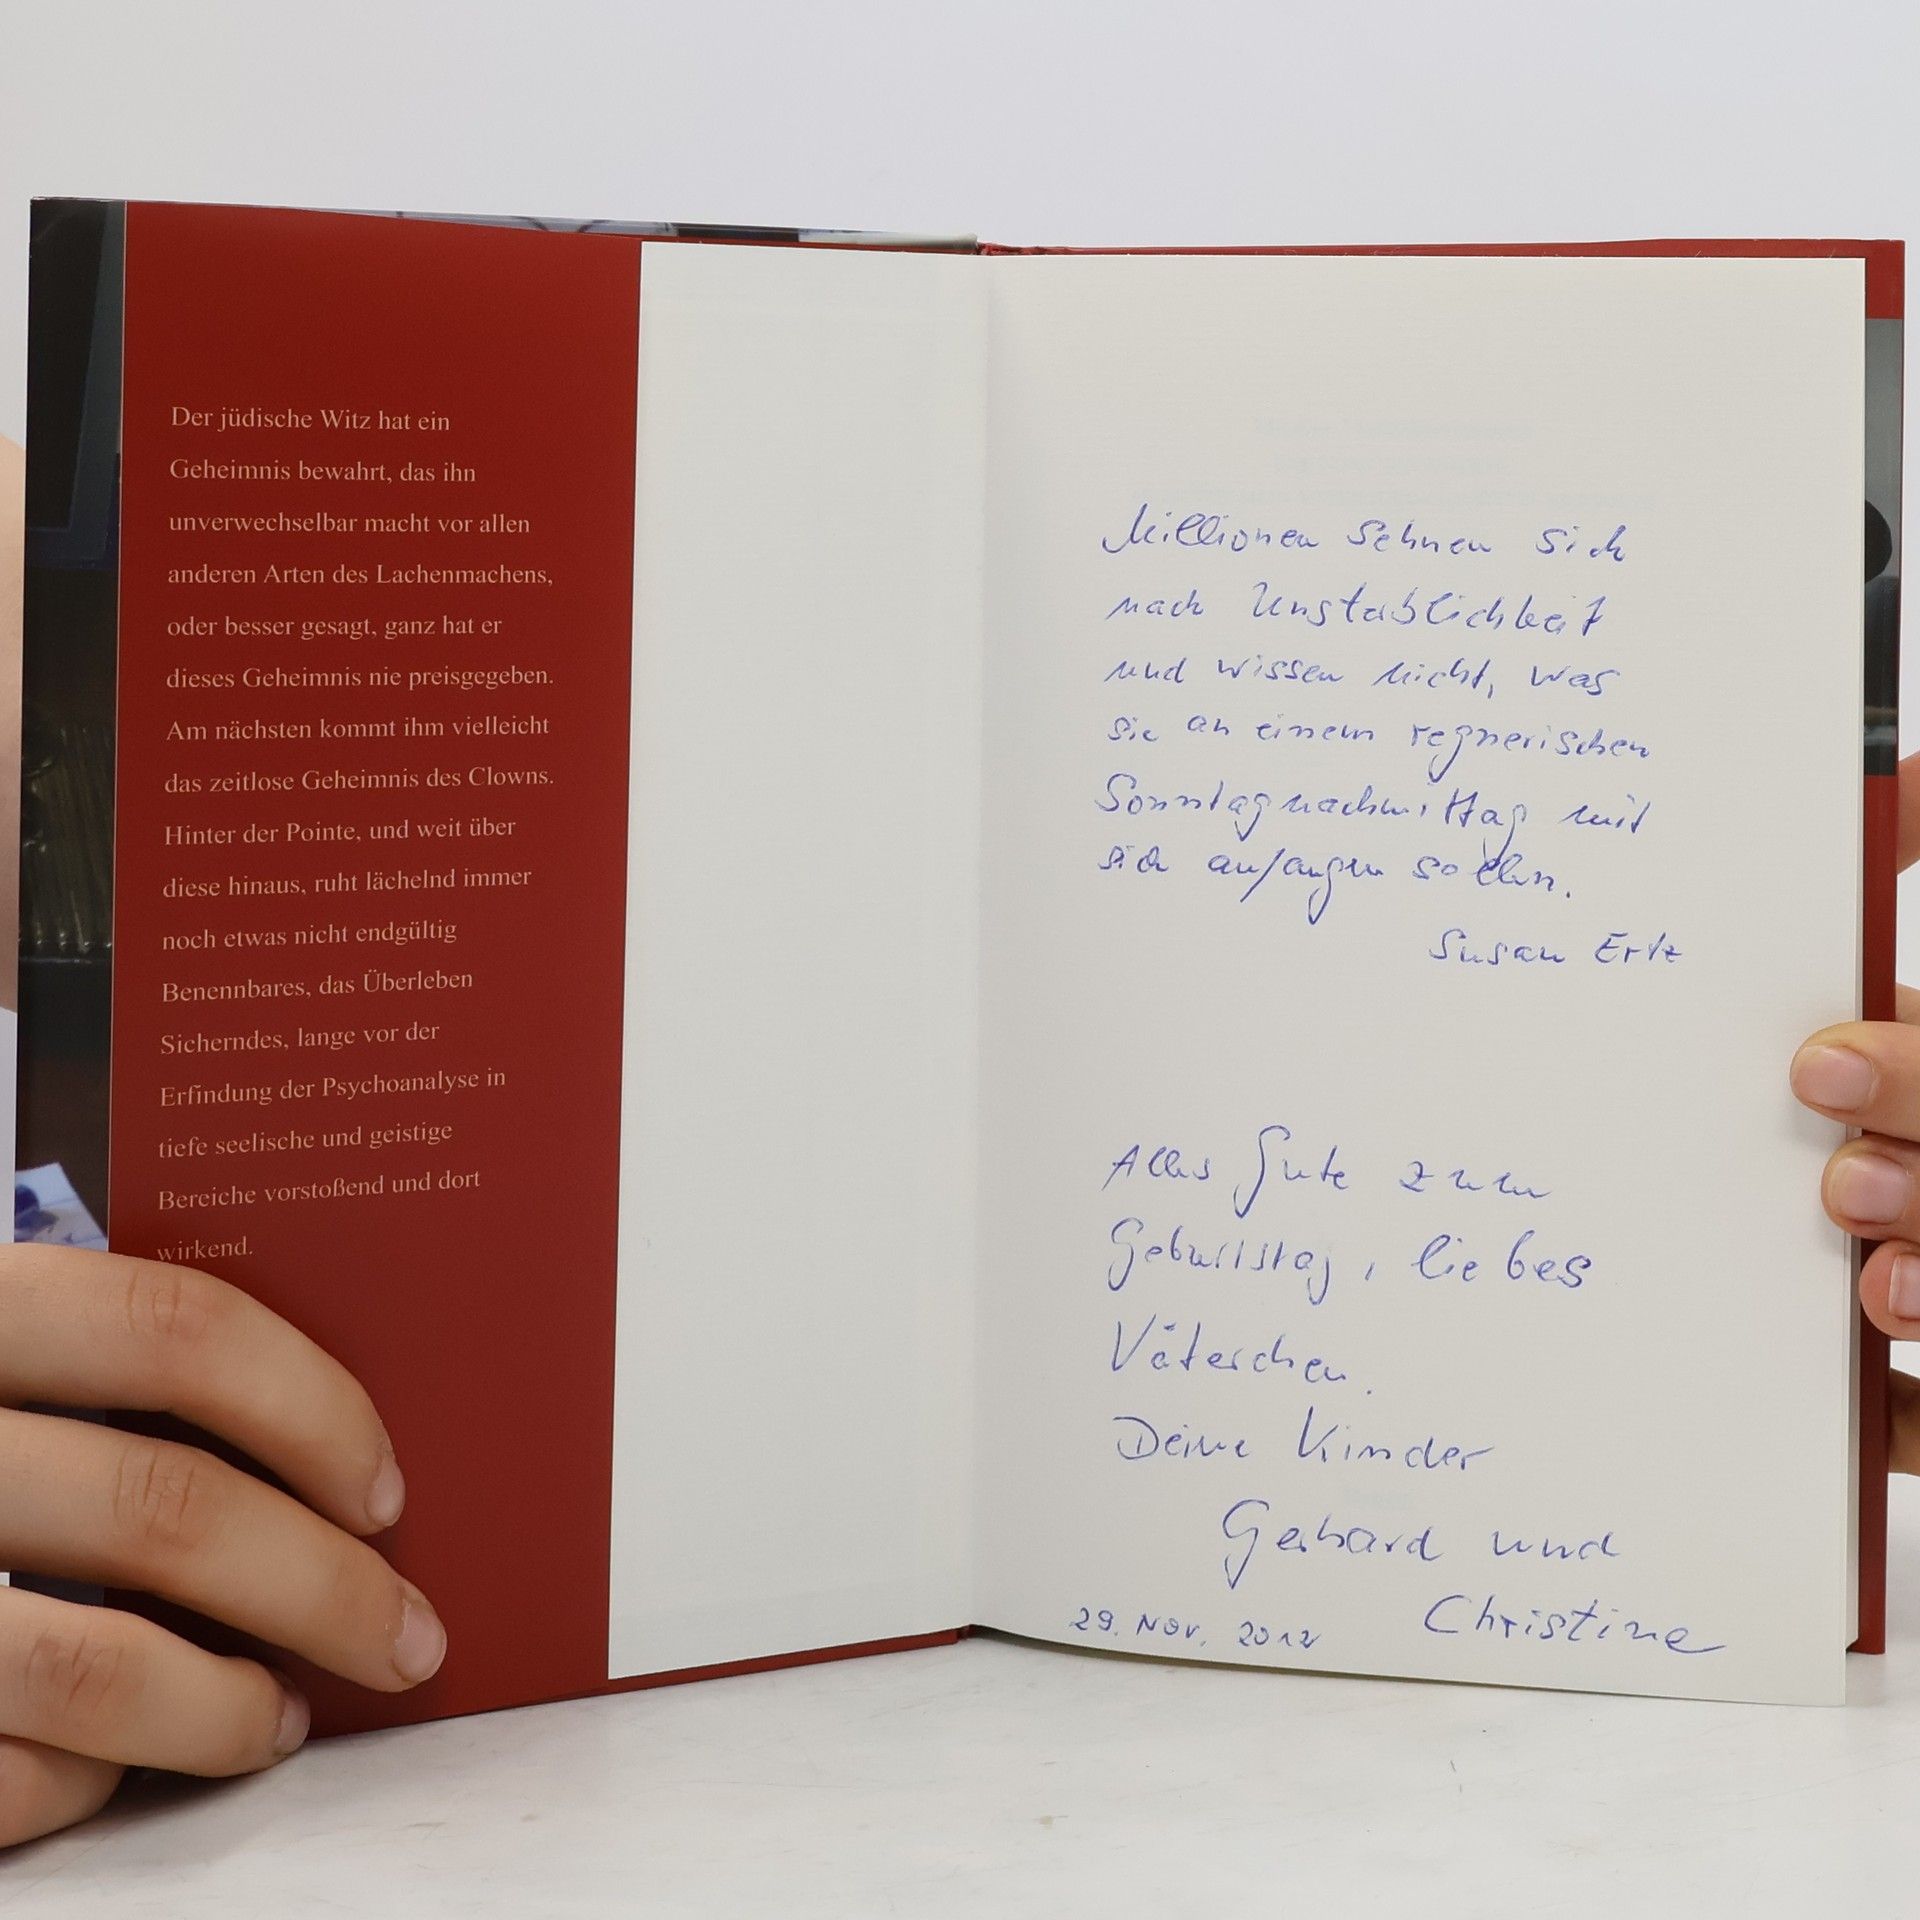 Der jüdische Witz hat ein
Geheimnis bewahrt, das ihn
unverwechselbar macht vor allen
anderen Arten des Lachenmachens,
oder besser gesagt, ganz hat er
dieses Geheimnis nie preisgegeben.
Am nächsten kommt ihm vielleicht
das zeitlose Geheimnis des Clowns.
Hinter der Pointe, und weit über
diese hinaus, ruht lächelnd immer
noch etwas nicht endgültig
Benennbares, das Überleben
Sicherndes, lange vor der
Erfindung der Psychoanalyse in
tiefe seelische und geistige
Bereiche vorstoßend und dort
wirkend.
Millionen sehnen sich
nach Unsterblichkeit
und wissen nicht, was
sie an einem regnerischen
Sonntagnachmittag mit
sich anfangen sollen.
Susan Ertz
Alles Gute zum
Geburtstag, liebes
Väterchen.
Deine Kinder
Gerhard und
Christine
29. Nov. 2012